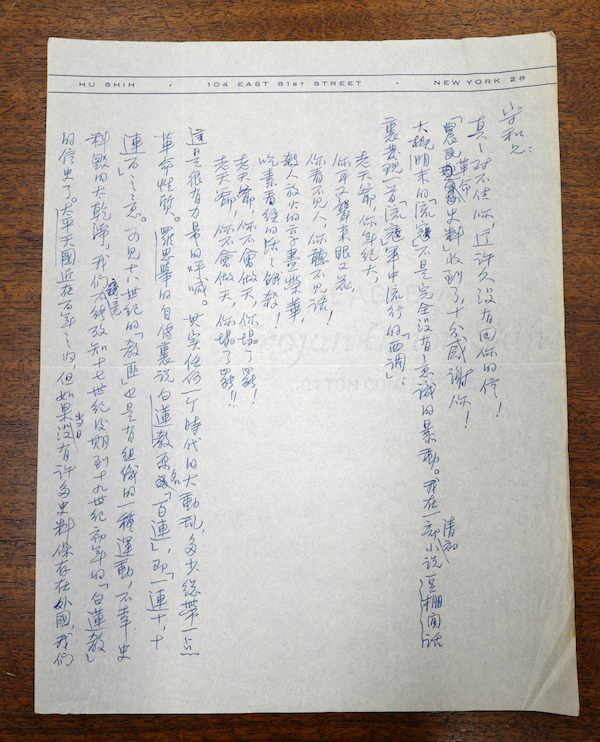 HU SHIH · 104 EAST 81ST STREET · NEW YORK 28
守和兄：
真真對不住你，這許久沒有回你的信！
「農民革命史料」收到了，十分感謝你！
大概明末的「流寇」不是完全沒有意識的暴動。我在一部清初小說豆棚閒話
裏發現一首「流寇」軍中流行的西調」：
老天爺，你年紀大，
你耳又聾來眼又花，
你看不見人，你聽不見話！
殺人放火的享盡榮華，
吃素看經的活活餓殺！
老天爺，你不會做天，你塌了罷！
老天爺，你不會做天，你塌了罷！！
這是很有力量的呼喊。其實任何一个時代的大動亂，多少總帶一点
革命性質。羅思舉的自傳裏說白蓮教原名「百連」，即「一連十，十
連百」之意。可見十八世紀的「教匪」也是有組織的一種運動，不幸史
料毀的太乾淨，我們竟不能考知十七世紀後期到十九世紀初年的「白蓮教」
的信史了。太平天國近在百年之內，但如果當日沒有許多史料保存在外國，我們